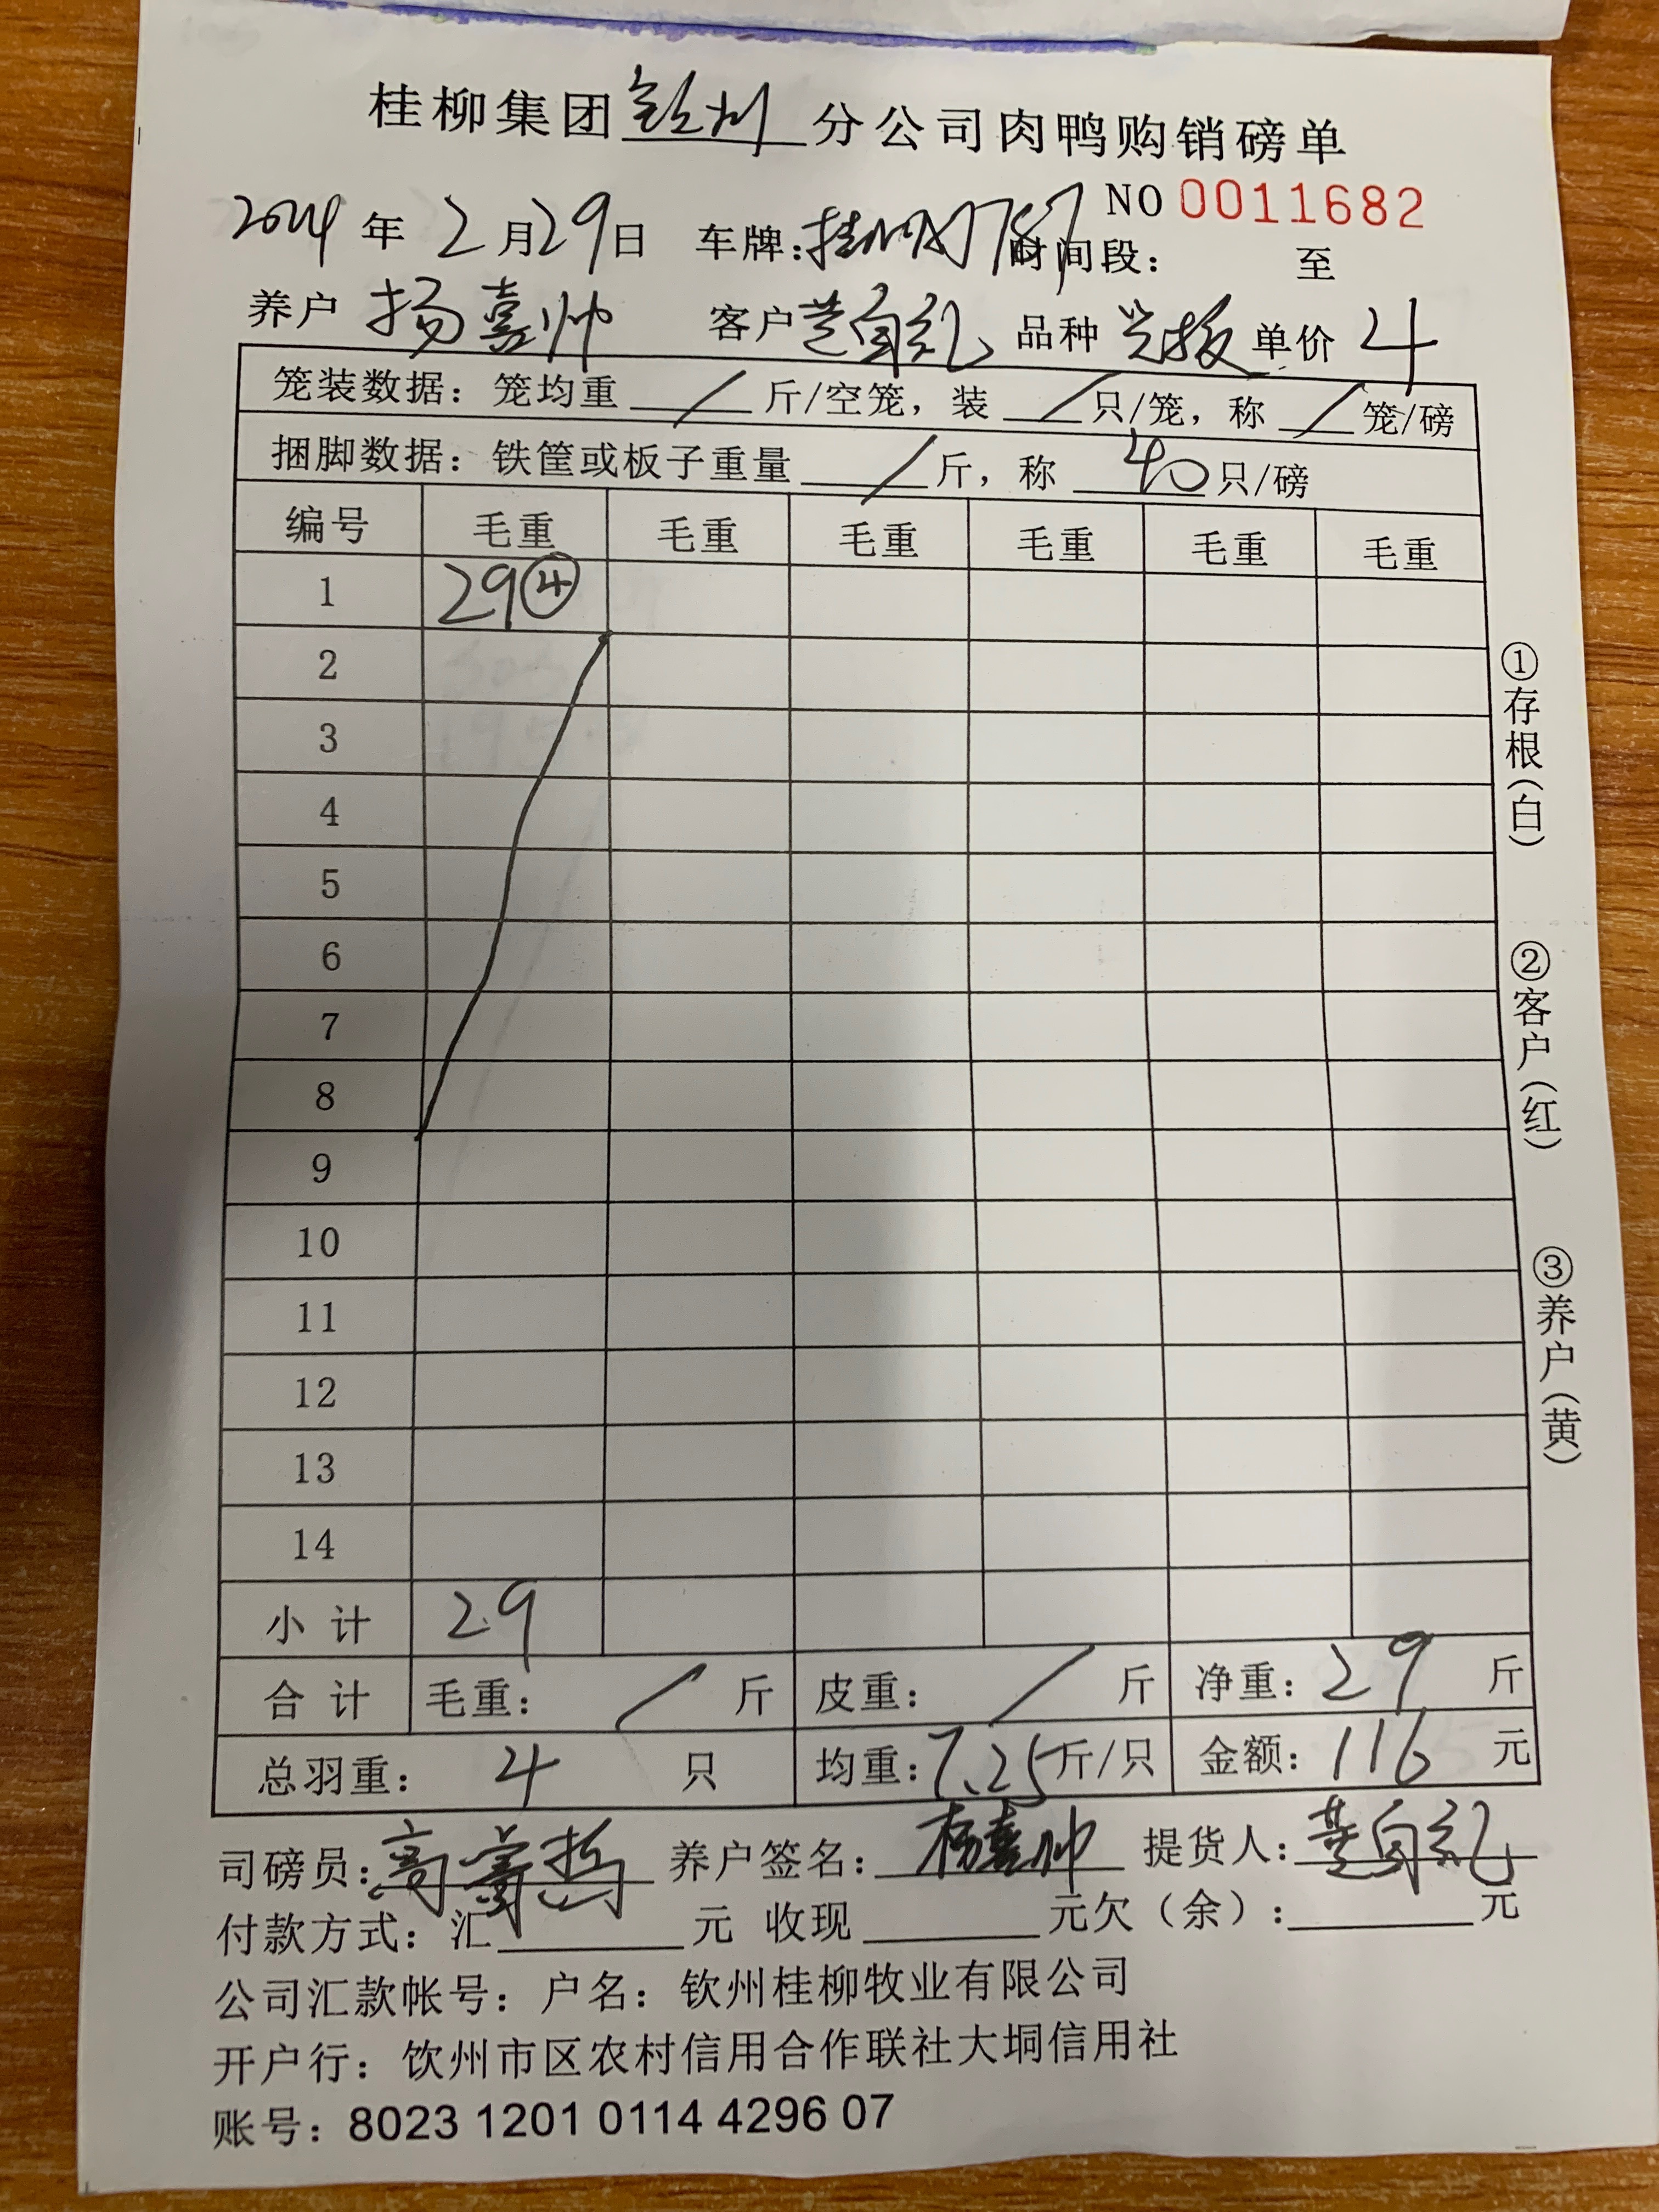 桂柳集团钦州分公司肉鸭购销磅单
NO 0011682
2024年2月29日 车牌: 时间段: 至
养户 杨嘉帅 客户 自礼 品种 单价 4
笼装数据: 笼均重 / 斤/空笼, 装 / 只/笼, 称 / 笼/磅
捆脚数据: 铁筐或板子重量 / 斤, 称 40 只/磅
编号 毛重 毛重 毛重 毛重 毛重 毛重
1 29④
2
3
4
5
6
7
8
9
10
11
12
13
14
小计 29
合计 毛重: / 斤 皮重: / 斤 净重: 29 斤
总羽重: 4 只 均重: 7.25 斤/只 金额: 116 元
司磅员: 高 哲 养户签名: 杨嘉帅 提货人: 自礼
付款方式: 汇 元 收现 元欠(余): 元
公司汇款帐号: 户名: 钦州桂柳牧业有限公司
开户行: 钦州市区农村信用合作联社大垌信用社
账号: 8023 1201 0114 4296 07
①存根(白)
②客户(红)
③养户(黄)